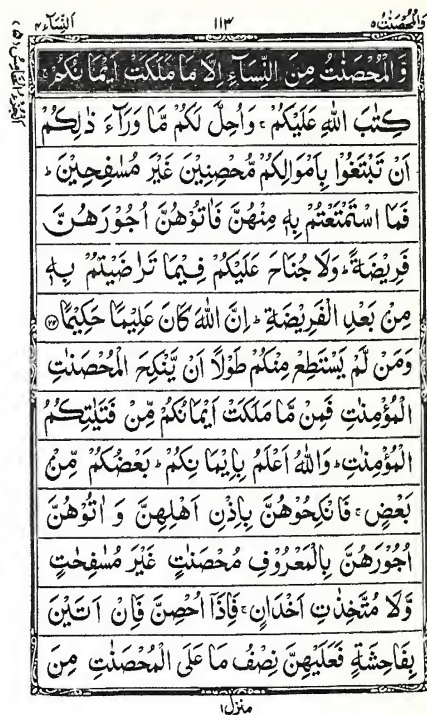 وَالْمُحْصَنٰتُ ٥
١١٣
اَلنِّسَآء ٤
وَّالْمُحْصَنٰتُ مِنَ النِّسَآءِ اِلَّا مَا مَلَكَتْ اَيْمَانُكُمْ ۚ
كِتٰبَ اللّٰهِ عَلَيْكُمْ ۚ وَاُحِلَّ لَكُمْ مَّا وَرَآءَ ذٰلِكُمْ
اَنْ تَبْتَغُوْا بِاَمْوَالِكُمْ مُّحْصِنِيْنَ غَيْرَ مُسٰفِحِيْنَ ؕ
فَمَا اسْتَمْتَعْتُمْ بِهٖ مِنْهُنَّ فَاٰتُوْهُنَّ اُجُوْرَهُنَّ
فَرِيْضَةً ؕ وَلَا جُنَاحَ عَلَيْكُمْ فِيْمَا تَرٰضَيْتُمْ بِهٖ
مِنْۢ بَعْدِ الْفَرِيْضَةِ ؕ اِنَّ اللّٰهَ كَانَ عَلِيْمًا حَكِيْمًا ﴿٢٤﴾
وَمَنْ لَّمْ يَسْتَطِعْ مِنْكُمْ طَوْلًا اَنْ يَّنْكِحَ الْمُحْصَنٰتِ
الْمُؤْمِنٰتِ فَمِنْ مَّا مَلَكَتْ اَيْمَانُكُمْ مِّنْ فَتَيٰتِكُمُ
الْمُؤْمِنٰتِ ؕ وَاللّٰهُ اَعْلَمُ بِاِيْمَانِكُمْ ؕ بَعْضُكُمْ مِّنْۢ
بَعْضٍ ۚ فَانْكِحُوْهُنَّ بِاِذْنِ اَهْلِهِنَّ وَ اٰتُوْهُنَّ
اُجُوْرَهُنَّ بِالْمَعْرُوْفِ مُحْصَنٰتٍ غَيْرَ مُسٰفِحٰتٍ
وَّلَا مُتَّخِذٰتِ اَخْدَانٍ ۚ فَاِذَاۤ اُحْصِنَّ فَاِنْ اَتَيْنَ
بِفَاحِشَةٍ فَعَلَيْهِنَّ نِصْفُ مَا عَلَى الْمُحْصَنٰتِ مِنَ
منزل ١